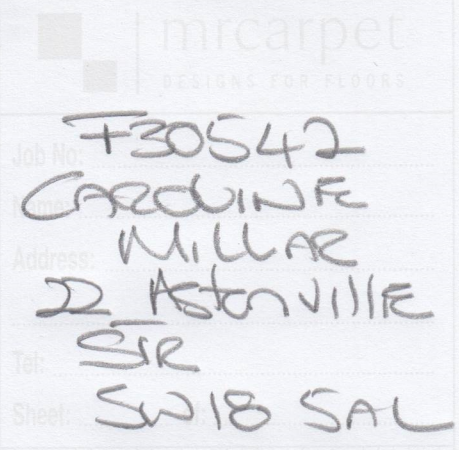 mrcarpet
DESIGNS FOR FLOORS
Job No: F30542
Name: CAROLINE
Address: MILLAR
22 Astonville
Tel: STR
Sheet: SW18 5AL